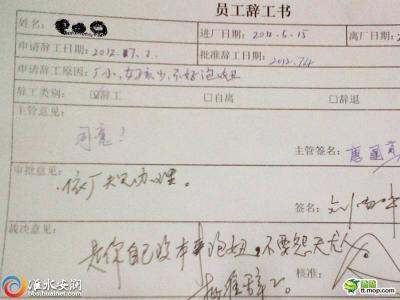 员工辞工书
姓名: 进厂日期: 2011.5.15 离厂日期:
申请辞工日期: 2012.7.2. 批准辞工日期: 2012.7.4
申请辞工原因: 厂小,女孩少,不好泡妞
辞工类别: ☑辞工 □自离 □辞退
主管意见:
同意!
主管签名:
审批意见:
依厂规办理。
签名:
裁决意见:
是你自己没本事泡妞,不要怨天尤人
批准辞工。 核准:
淮水安澜
bbs
tt.mop.com